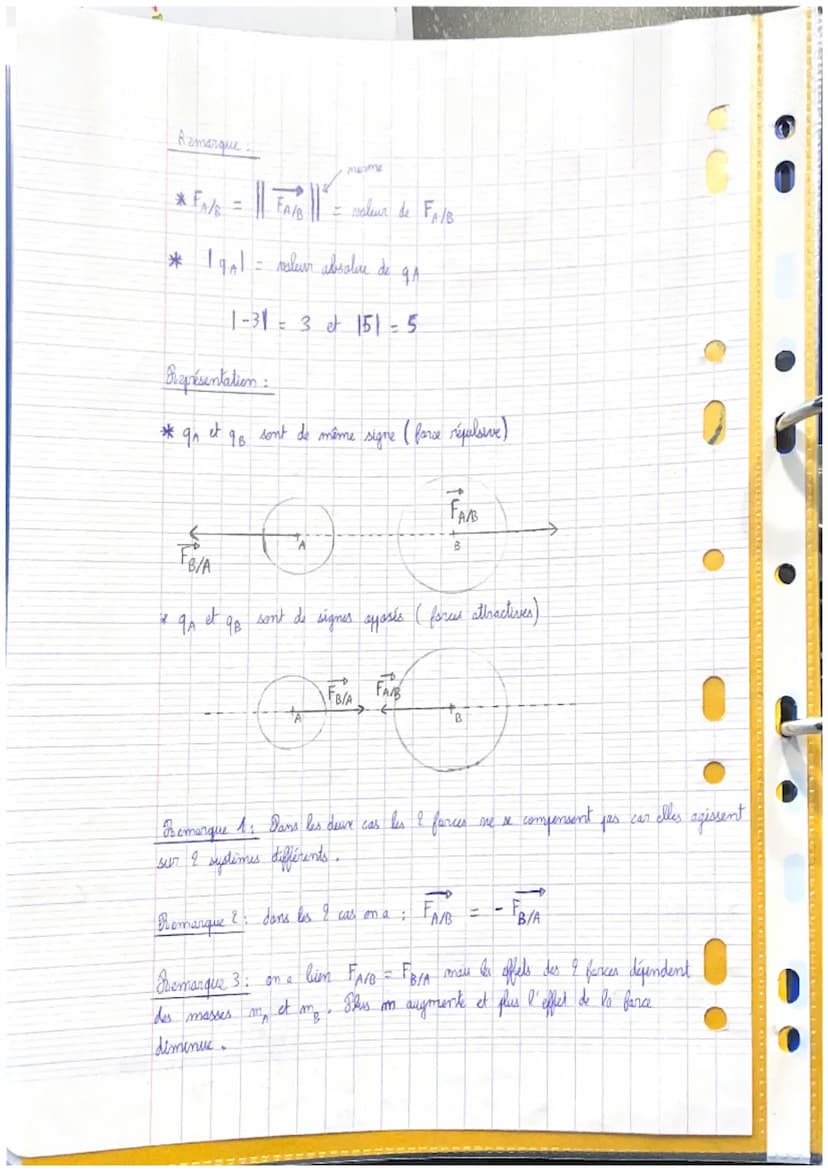 Remarque :
norme
* F_A/B = || F_A/B || = valeur de F_A/B
* |q_A| = valeur absolue de q_A
|-3| = 3 et |5| = 5
Représentation :
* q_A et q_B sont de même signe (force répulsive)
F_A/B
A B
F_B/A
* q_A et q_B sont de signes opposés (forces attractives)
F_B/A F_A/B
A B
Remarque 1 : Dans les deux cas les 2 forces ne se compensent pas car elles agissent
sur 2 systèmes différents.
Remarque 2 : dans les 2 cas on a : F_A/B = - F_B/A
Remarque 3 : on a bien F_A/B = F_B/A mais les effets des 2 forces dépendent
des masses m_A et m_B. Plus m augmente et plus l'effet de la force
diminue.